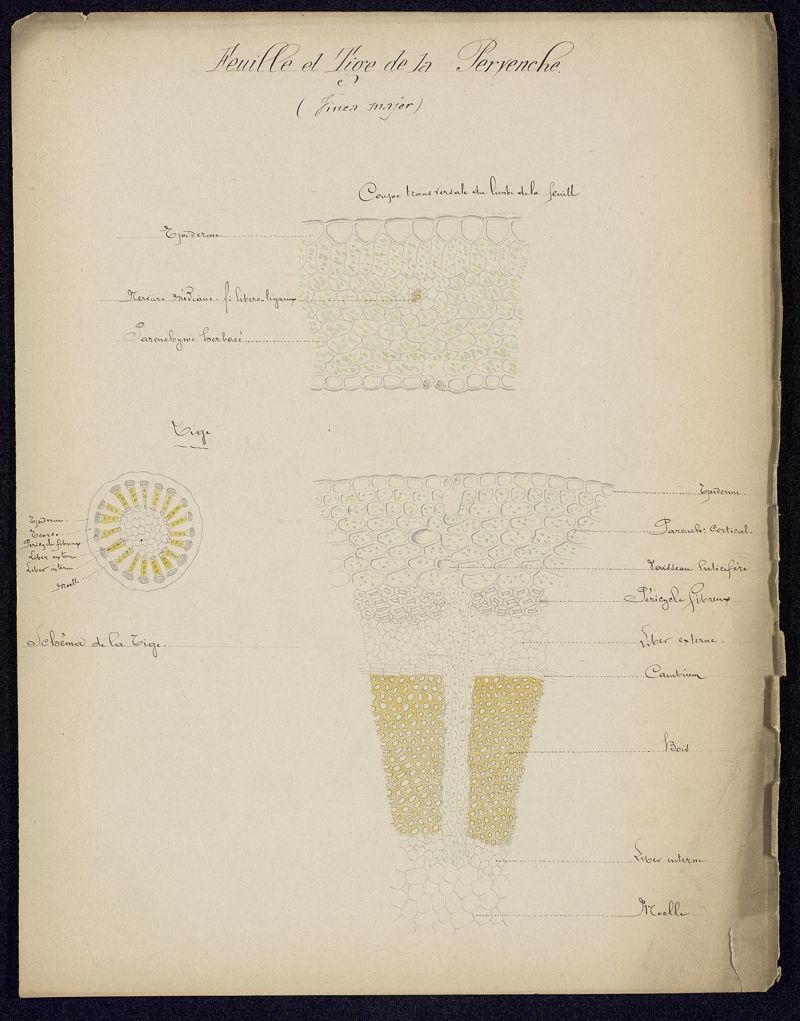 Feuille et Tige de la Pervenche.
(Vinca major)
Coupe transversale du limbe de la feuill
Epiderme
Nervure médiane. f. libero-ligneux
Parenchyme herbacé
Tige
Epiderme.
Ecorce.
Péricycle fibreux
Liber externe
Liber interne
Moelle
Schéma de la Tige.
Epiderme
Parench: Cortical.
Vaisseau laticifère
Péricycle fibreux
Liber externe.
Cambium
Bois
Liber interne
Moelle